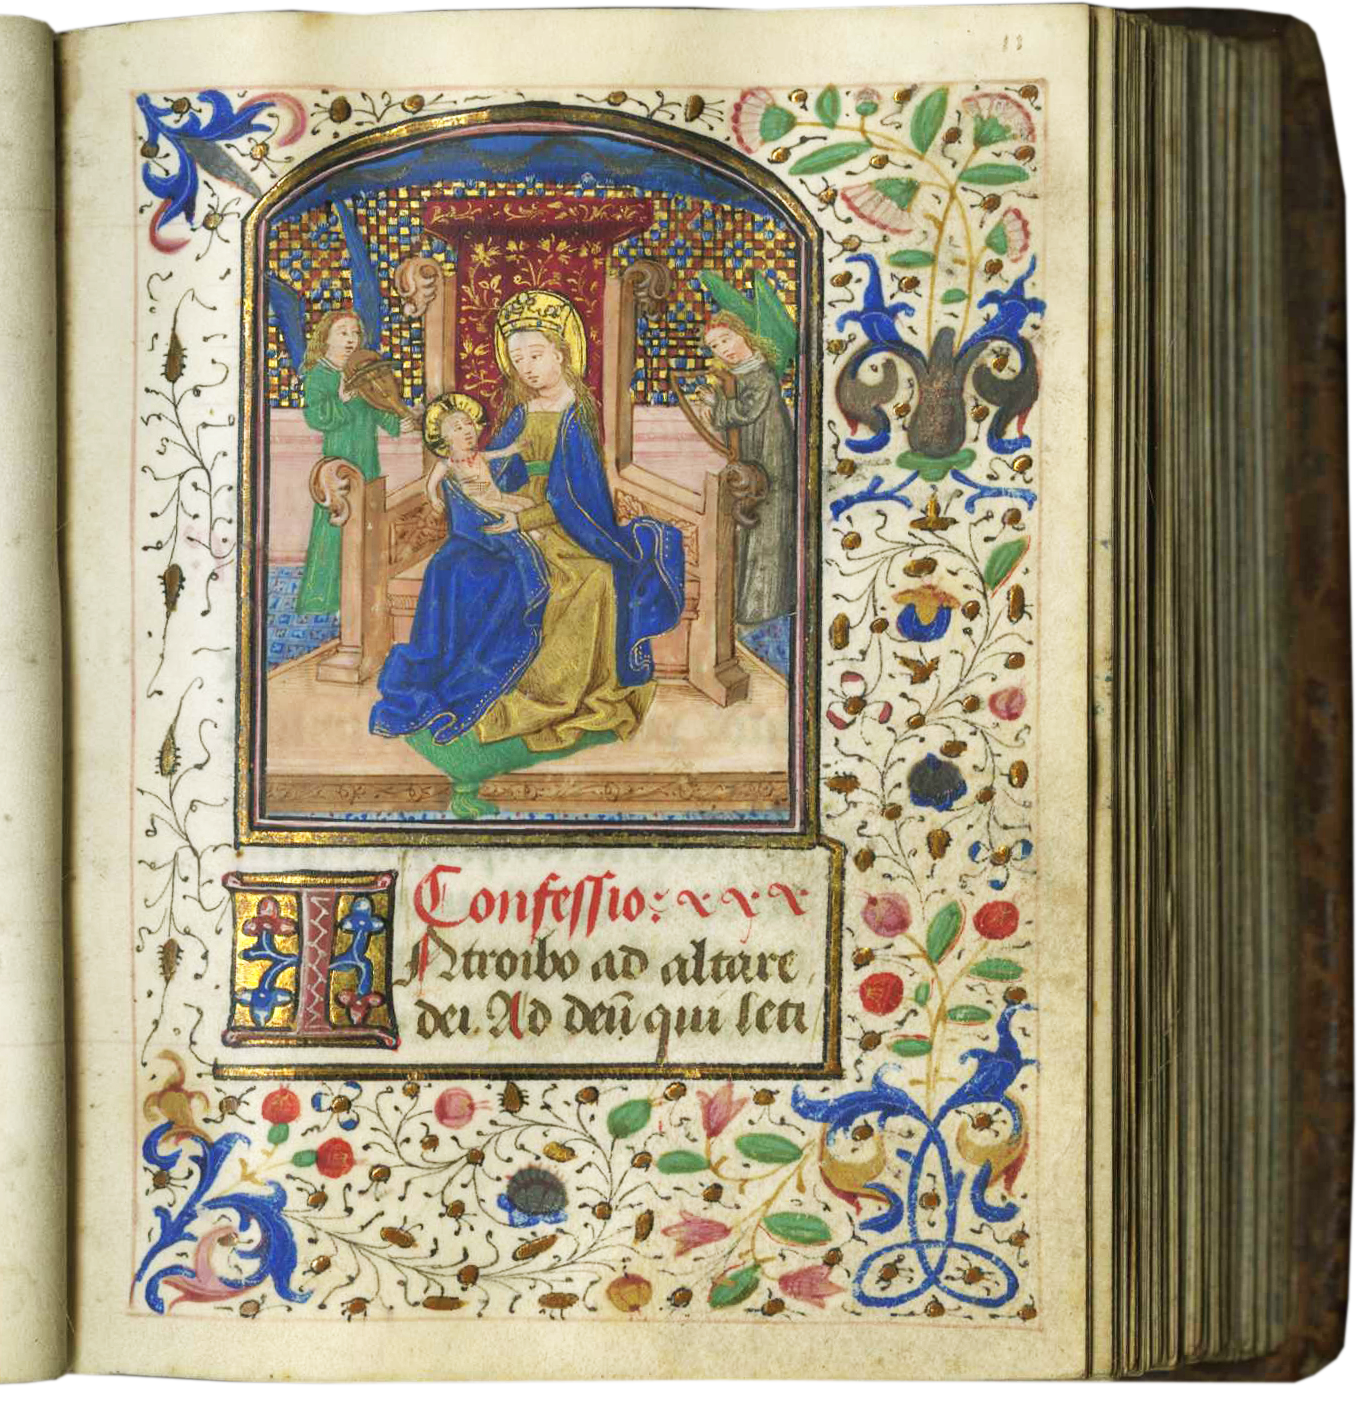 Confessio: x x x
INtroibo ad altare
dei. Ad deū qui leti